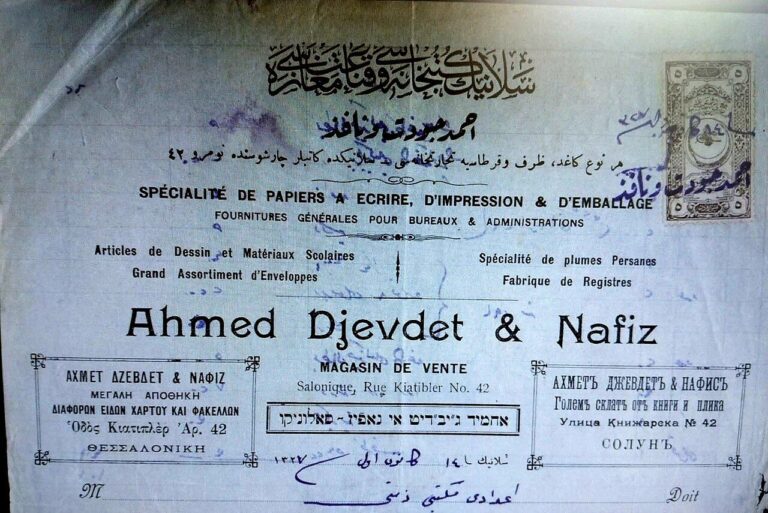 سلانیك كتبخانه سی وقرطاسیه مغازه سی
احمد جودت ونافذ
هر نوع كاغد، ظرف و قرطاسیه تجارتخانه سی سلانیكده كاتبلر چارشوسنده نومرو ٤٢
SPÉCIALITÉ DE PAPIERS A ECRIRE, D'IMPRESSION & D'EMBALLAGE
FOURNITURES GÉNÉRALES POUR BUREAUX & ADMINISTRATIONS
Articles de Dessin et Matériaux Scolaires
Grand Assortiment d'Enveloppes
Spécialité de plumes Persanes
Fabrique de Registres
Ahmed Djevdet & Nafiz
MAGASIN DE VENTE
Salonique, Rue Kiatibler No. 42
ΑΧΜΕΤ ΔΖΕΒΔΕΤ & ΝΑΦΙΖ
ΜΕΓΑΛΗ ΑΠΟΘΗΚΗ
ΔΙΑΦΟΡΩΝ ΕΙΔΩΝ ΧΑΡΤΟΥ ΚΑΙ ΦΑΚΕΛΛΩΝ
Ὁδὸς Κιατιπλὲρ Ἀρ. 42
ΘΕΣΣΑΛΟΝΙΚΗ
אחמיד ג׳יב׳דיט אי נאפיז - סאלוניקו
АХМЕТЪ ДЖЕВДЕТЪ & НАФИСЪ
Големъ склатъ отъ книги и плика
Улица Книжарска № 42
СОЛУНЪ
سلانیك ١٤ كانون اول ١٣٢٧
M
اعدادی مكتبی
Doit
٥ ٥
احمد جودت ونافذ
٥ ٥